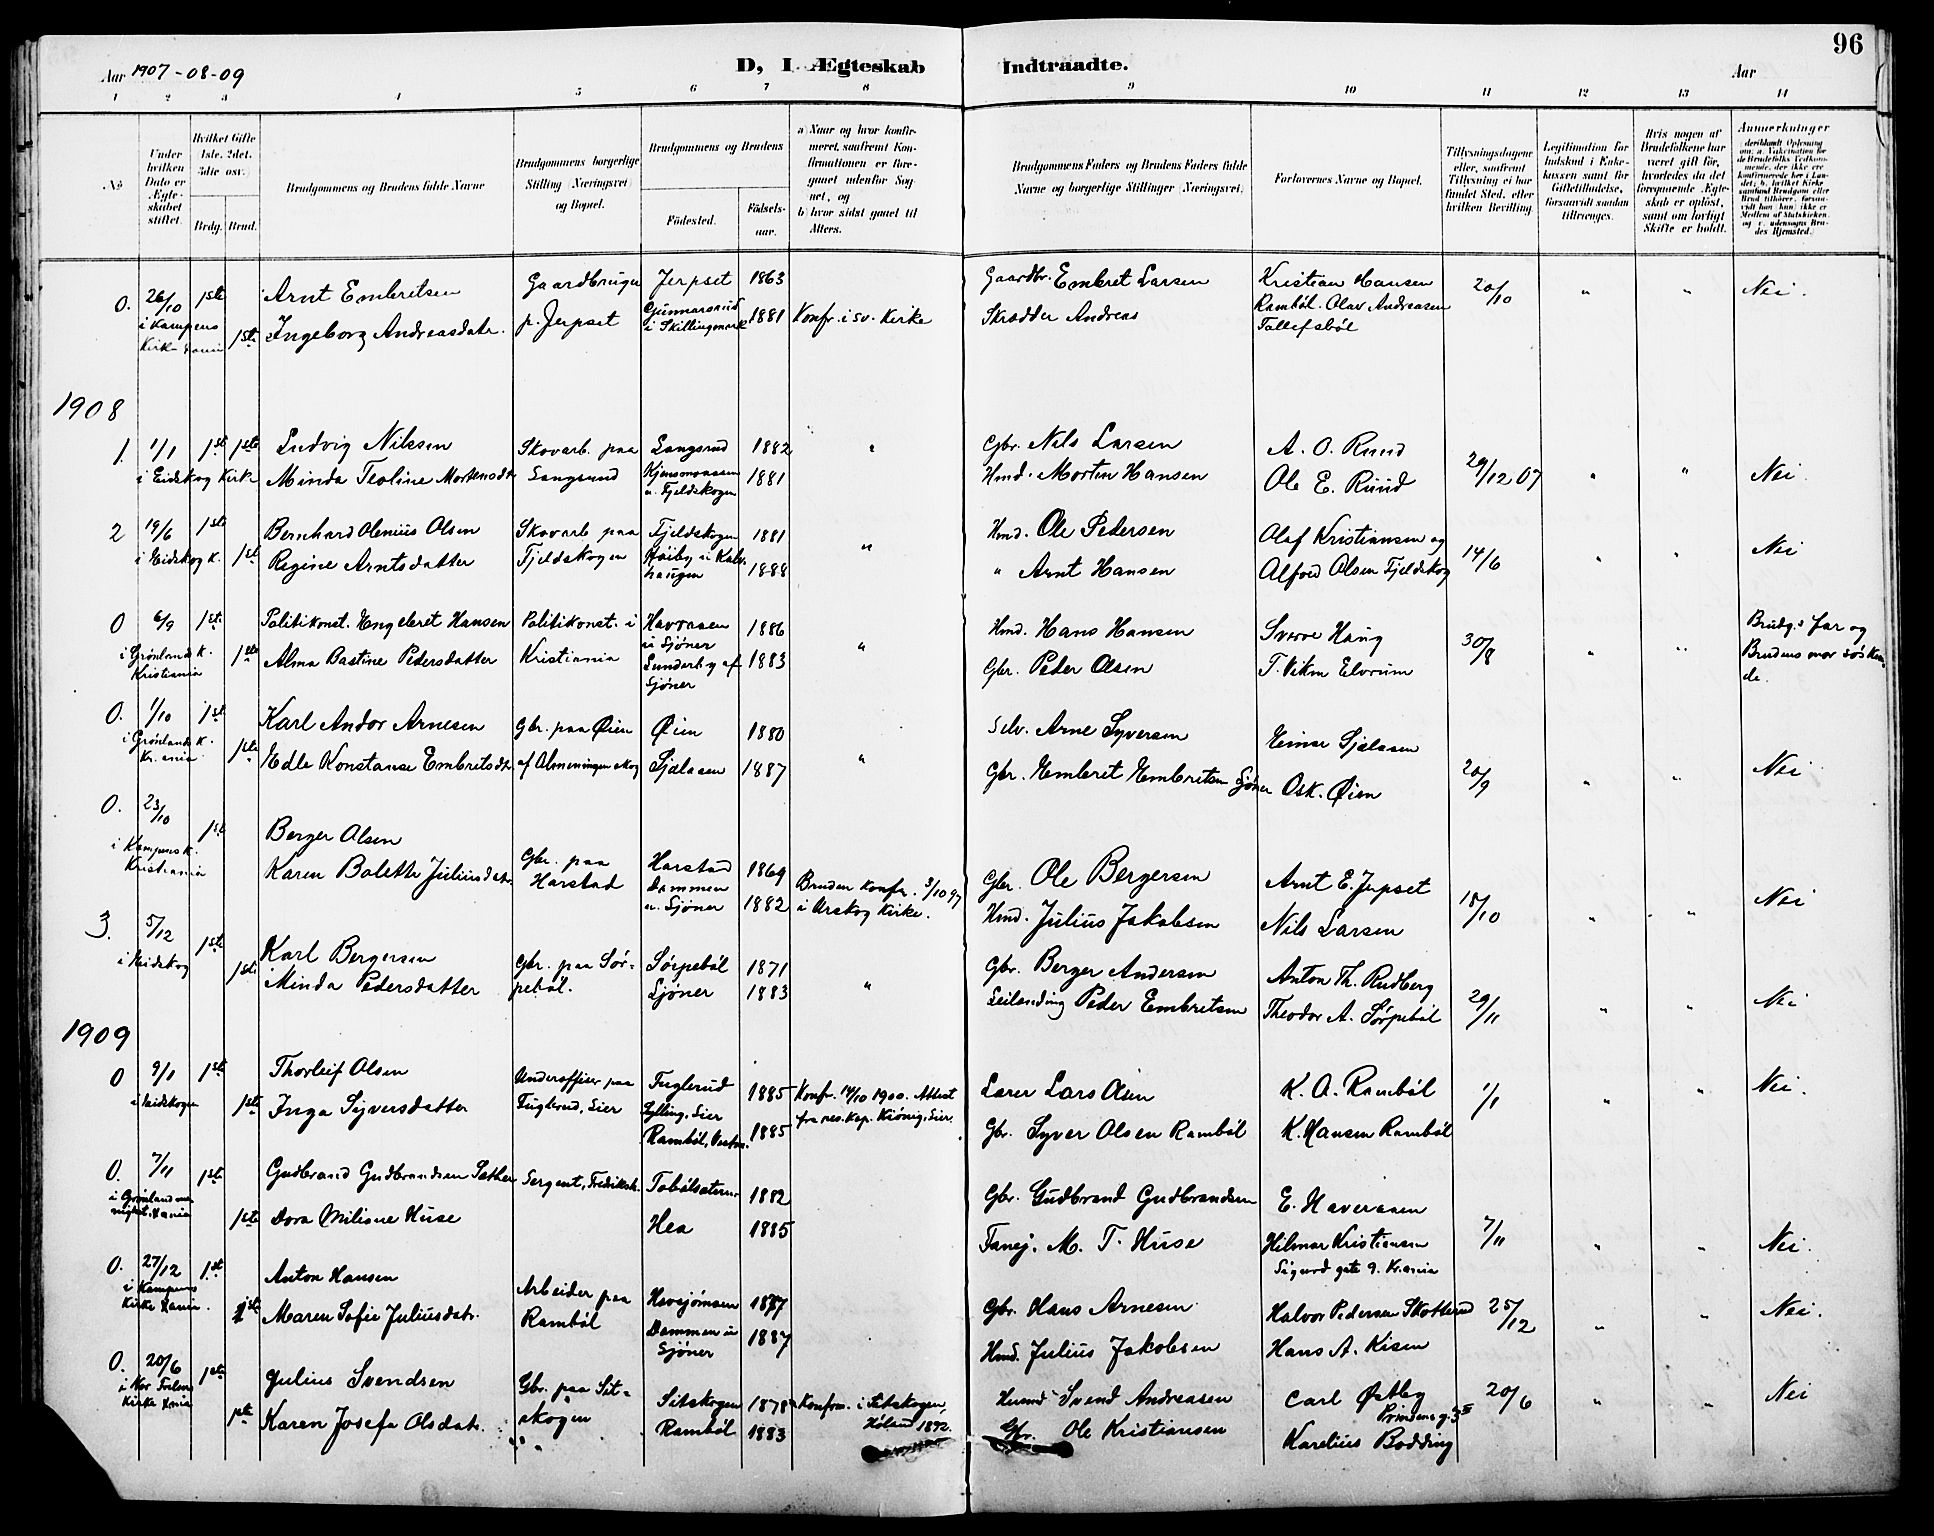 96
Aar 1907-08-09
D, I Ægteskab Indtraadte.
Aar
1 2 3 4 5 6 7 8 9 10 11 12 13 14
No
Under hvilken Dato er Ægteskabet stiftet.
Hvilket Gifte 1ste. 2det. 3die osv.
Brdg. Brud.
Brudgommens og Brudens fulde Navne
Brudgommens borgerlige Stilling (Næringsvei) og Bopæl.
Brudgommens og Brudens
Fødested.
Fødsels-aar.
a) Naar og hvor konfirmeret, saafremt Konfirmationen er foregaaet udenfor Sognet, og
b) hvor sidst gaaet til Alters.
Brudgommens Faders og Brudens Faders fulde Navne og borgerlige Stillinger (Næringsvei).
Forlovernes Navne og Bopæl.
Tillysningsdagene eller, saafremt Tillysning ei har fundet Sted, efter hvilken Bevilling.
Legitimation for Indskud i Enkekassen samt for Giftetilladelse, forsaavidt saadan tiltrænges.
Hvis nogen af Brudefolkene har været gift før, hvorledes da det foregaaende Ægteskab er opløst, samt om lovligt Skifte er holdt.
Anmerkninger
0. 26/10 1ste Arnt Embretsen Gaardbruger Jerpset 1863 Gaardbr. Embret Larsen Kristian Hansen 20/10 " " Nei.
i Kampens Kirke 1ste Ingeborg Andreasdatr. p. Jerpset Gunnarsrud i Skillingmark 1881 Konfr. i sv. Kirke Skrædder Andreas Rambøl. Olav Andreasen
Tollefsbøl
1908
1. 1/1 1ste 1ste Ludvig Nilssen Skovarb. paa Langsrud 1882 " Gbr. Nils Larsen A. O. Ruud
i Eidskog Kirke Minda Teoline Mortensdtr Langsrud Kjensmoaasen u. Fjeldskogen 1881 Hmd. Morten Hansen Ole E. Ruud 29/12 07 " " Nei.
2 19/6 1ste Bernhard Olenius Olsen Skovarb paa Fjeldskogen 1881 Hmd. Ole Pedersen Olaf Kristiansen og
i Eidskog K. 1ste Regine Arntsdatter Fjeldskogen 1888 " " Arnt Hansen Alfred Olsen Fjeldskog 14/6 " " Nei
0 6/9 1ste Politikonst. Engebret Hansen Politikonst. i Havraasen u Sjøner 1886 Hmd. Hans Hansen Sverre Haug Brudg.s far og
i Grønlands K. Kristiania 1ste Alma Bastine Pedersdatter Kristiania Sunderby af Sjøner 1883 " Gbr. Peder Olsen T. Viken Elverum 30/8 " " Brudens mor søskende.
0. 1/10 1ste Karl Andor Arnesen Gbr. paa Øien Øien 1880 Selv. Arne Syversen Einar Sjølasen
i Grønlands K. Kr.ania 1ste Edle Konstanse Embretsdtr. af Almeningen skog Sjølasen 1887 " Gbr. Embret Embretsen Sjøner Osk. Øien 20/9 " " Nei
0. 23/10 1ste Berger Olsen Gbr. paa Harstad 1869 Gbr. Ole Bergersen Arnt E. Jerpset
i Kampens K. Kristiania Karen Bolette Juliusdatr. Harstad Dammen u. Sjøner 1882 Bruden konfr. 3/10 97 i Urskog Kirke. Hmd. Julius Jakobsen Nils Larsen 18/10 " " Nei
3. 5/12 1ste Karl Bergersen Gbr. paa Sørpebøl. Sørpebøl 1871 Gbr. Berger Andersen Anton Th. Rudberg
i Eidskog 1ste Minda Pedersdatter Sjøner 1883 " Leilending Peder Embretsen Theodor A. Sørpebøl 29/11 " " Nei
1909
0 9/1 1ste Thorleif Olsen Underofficer paa Fuglerud 1885 Konfr. 14/10 1900. Attest Lærer Lars Olsen K. O. Rambøl 1/1 " " Nei.
i Eidskogen 1ste Inga Syversdatter Fuglerud, Lier Sylling, Lier Rambøl, 1885 fra res. kap. Kiønig, Lier. Gbr. Syver Olsen Rambøl K. Hansen Rambøl
0. 7/11 1ste Gudbrand Gudbrandsen Sæther Sergent, Fredriksh. 1882 Gbr. Gudbrand Gudbrandsen E. Haveraaen
i Grønland menighet. Kania 1ste Dora Milisne Huse Hea 1885 M. T. Huse Hilmar Kristiansen 7/11 " " Nei.
Sigurd gate 9. Kr.ania
0. 27/12 1ste Anton Hansen Arbeider paa Havsjømoen 1877 Gbr. Hans Arnesen Halvor Pedersen Skotterud 25/12 " " Nei.
i Kampens Kirke Kania. 1ste Maren Sofie Juliusdatr. Rambøl Dammen u Sjøner 1887 Hmd. Julius Jakobsen Hans A. Kisen
0. 20/6 1ste Julius Svendsen Gbr. paa Sitskogen Sitskogen 1878 Konfrm. i Sitskogen, Høland 1892. Svend Andreasen Carl Østby 20/6 " " Nei
Kirke Kania 1ste Karen Josefa Olsdatr. " " Rambøl 1883 Gbr. Ole Kristiansen Prindsensg. 3 II
Karelius Bodding